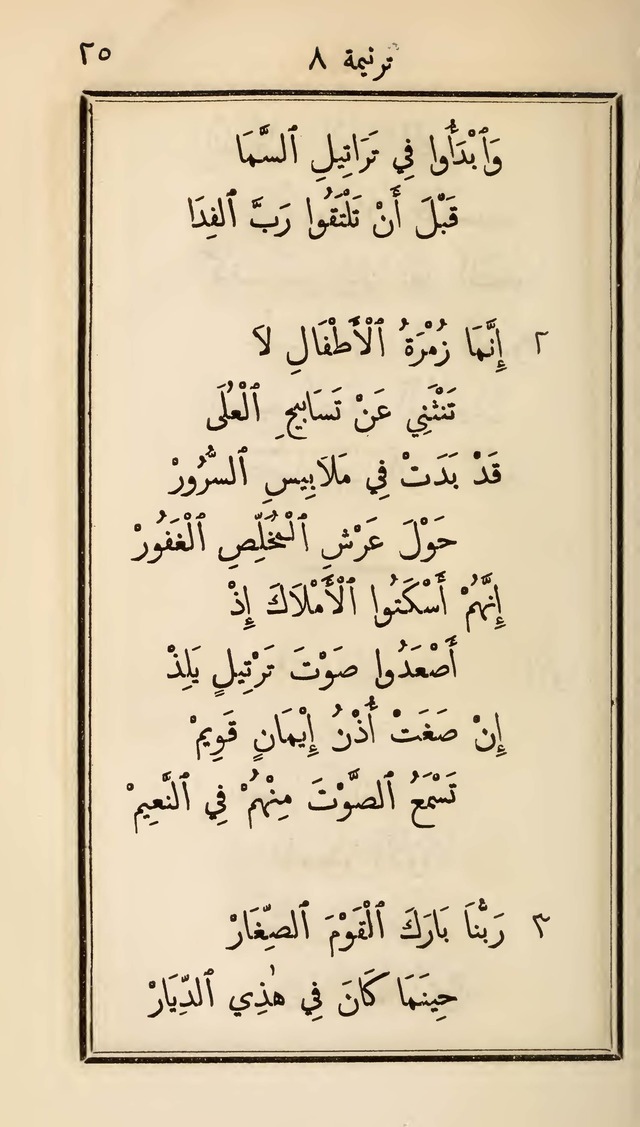 ترنيمة ٨
٢٥
وَٱبْدَأُوا فِي تَرَاتِيلِ ٱلسَّمَا
قَبْلَ أَنْ تَلْتَقُوا رَبَّ ٱلفِدَا
٢ إِنَّمَا زُمْرَةُ ٱلْأَطْفَالِ لاَ
تَنْثَنِي عَنْ تَسَابِيحِ ٱلْعُلَى
قَدْ بَدَتْ فِي مَلاَبِيسِ ٱلسُّرُورْ
حَوْلَ عَرْشِ ٱلْمُخَلِّصِ ٱلْغَفُورْ
إِنَّهُمْ أَسْكَتُوا ٱلْأَمْلاَكَ إِذْ
أَصْعَدُوا صَوْتَ تَرْتِيلٍ يَلِذْ
إِنْ صَغَتْ أُذْنُ إِيْمَانٍ قَوِيمْ
تَسْمَعُ ٱلصَّوْتَ مِنْهُمْ فِي ٱلنَّعِيمْ
٣ رَبُّنَا بَارَكَ ٱلْقَوْمَ ٱلصِّغَارْ
حِينَمَا كَانَ فِي هٰذِي ٱلدِّيَارْ